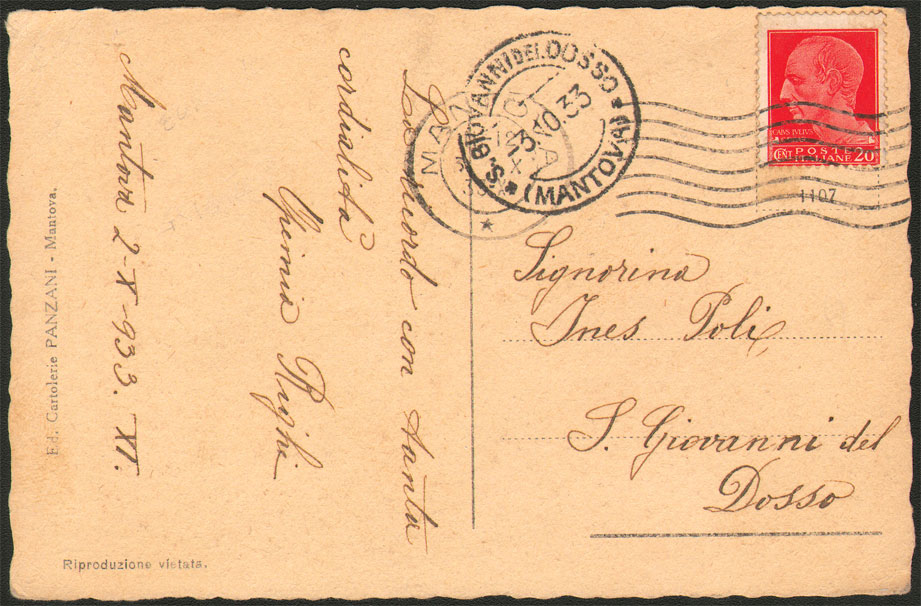 Mantova 2-X-933. XI.
La ricordo con tanta
cordialità
Righi
Ed. Cartolerie PANZANI - Mantova.
Riproduzione vietata.
S. GIOVANNI DEL DOSSO
(MANTOVA)
3.10.33
MAN
CAIVS IVLIVS
CENT POSTE ITALIANE 20
1107
Signorina
Ines Poli
S. Giovanni del
Dosso